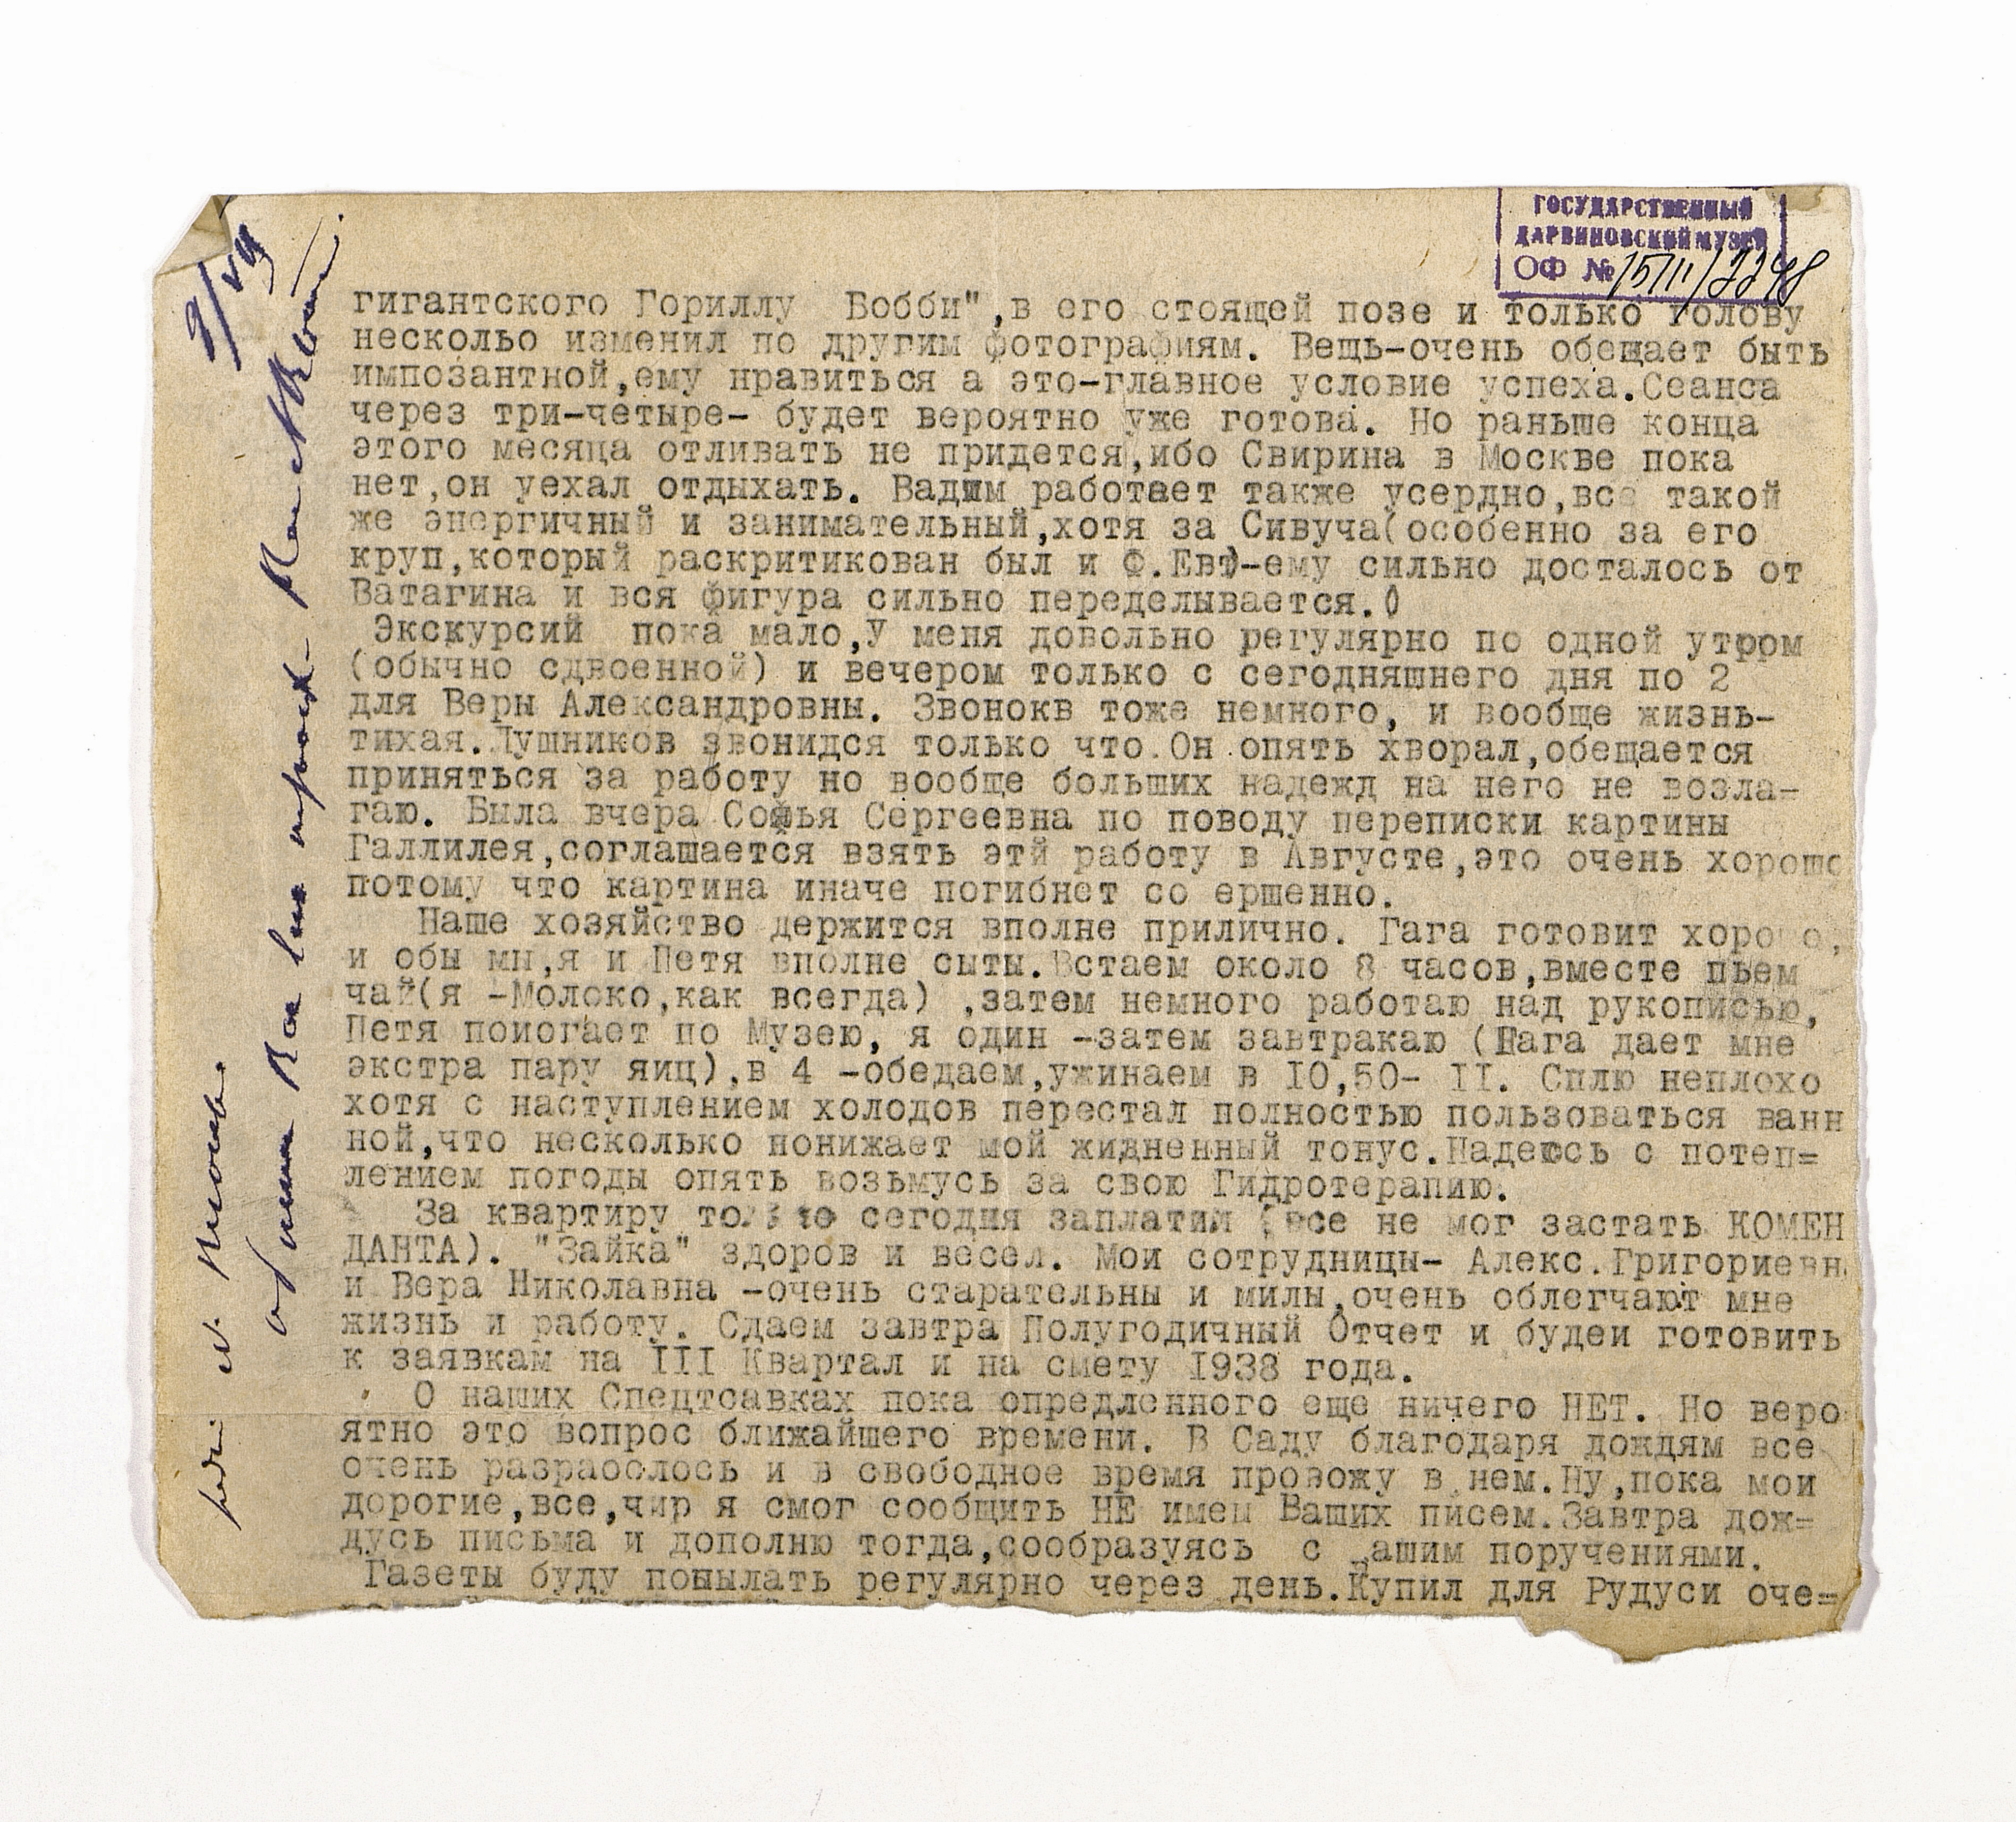 ГОСУДАРСТВЕННЫЙ
ДАРВИНОВСКИЙ МУЗЕЙ
ОФ № 15111/2248
9/VII
гигантского Гориллу Бобби",в его стоящей позе и только голову
нескольо изменил по другим фотографиям. Вещь-очень обещает быть
импозантной,ему нравиться а это-главное условие успеха.Сеанса
через три-четыре- будет вероятно уже готова. Но раньше конца
этого месяца отливать не придется,ибо Свирина в Москве пока
нет,он уехал отдыхать. Вадим работает также усердно,все такой
же энергичный и занимательный,хотя за Сивуча(особенно за его
круп,который раскритикован был и Ф.Евг)-ему сильно досталось от
Ватагина и вся фигура сильно переделывается.
Экскурсий пока мало,У меня довольно регулярно по одной утром
(обычно сдвоенной) и вечером только с сегодняшнего дня по 2
для Веры Александровны. Звонокв тоже немного, и вообще жизнь-
тихая.Душников звонидся только что.Он опять хворал,обещается
приняться за работу но вообще больших надежд на него не возла=
гаю. Была вчера Софья Сергеевна по поводу переписки картины
Галлилея,соглашается взять этй работу в Августе,это очень хорошо
потому что картина иначе погибнет со ершенно.
Наше хозяйство держится вполне прилично. Гага готовит хорошо,
и обы мн,я и Петя вполне сыты.Встаем около 8 часов,вместе пьем
чай(я -Молоко,как всегда) ,затем немного работаю над рукописью,
Петя поиогает по Музею, я один -затем завтракаю (Гага дает мне
экстра пару яиц),в 4 -обедаем,ужинаем в IO,50- II. Сплю неплохо
хотя с наступлением холодов перестал полностью пользоваться ванн
ной,что несколько понижает мой жидненный тонус.Надеюсь с потеп=
лением погоды опять возьмусь за свою Гидротерапию.
За квартиру только сегодня заплатим (все не мог застать КОМЕН
ДАНТА). "Зайка" здоров и весел. Мои сотрудницы- Алекс.Григориевн
и Вера Николавна -очень старательны и милы,очень облегчают мне
жизнь и работу. Сдаем завтра Полугодичный Отчет и будеи готовить
к заявкам на III Квартал и на смету I938 года.
О наших Спецтсавках пока опредленного еще ничего НЕТ. Но веро
ятно это вопрос ближайшего времени. В Саду благодаря дождям все
очень разраослось и в свободное время провожу в нем.Ну,пока мои
дорогие,все,чир я смог сообщить НЕ имея Ваших писем.Завтра дож=
дусь письма и дополню тогда,сообразуясь с Вашим поручениями.
Газеты буду понылать регулярно через день.Купил для Рудуси оче=